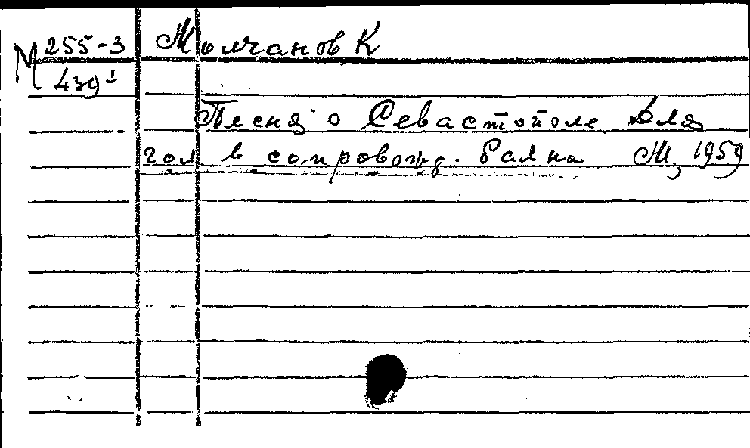 М 255-3 Молчанов К
439¹
Песня о Севастополе Для
гол в сопровожд. баяна М, 1959